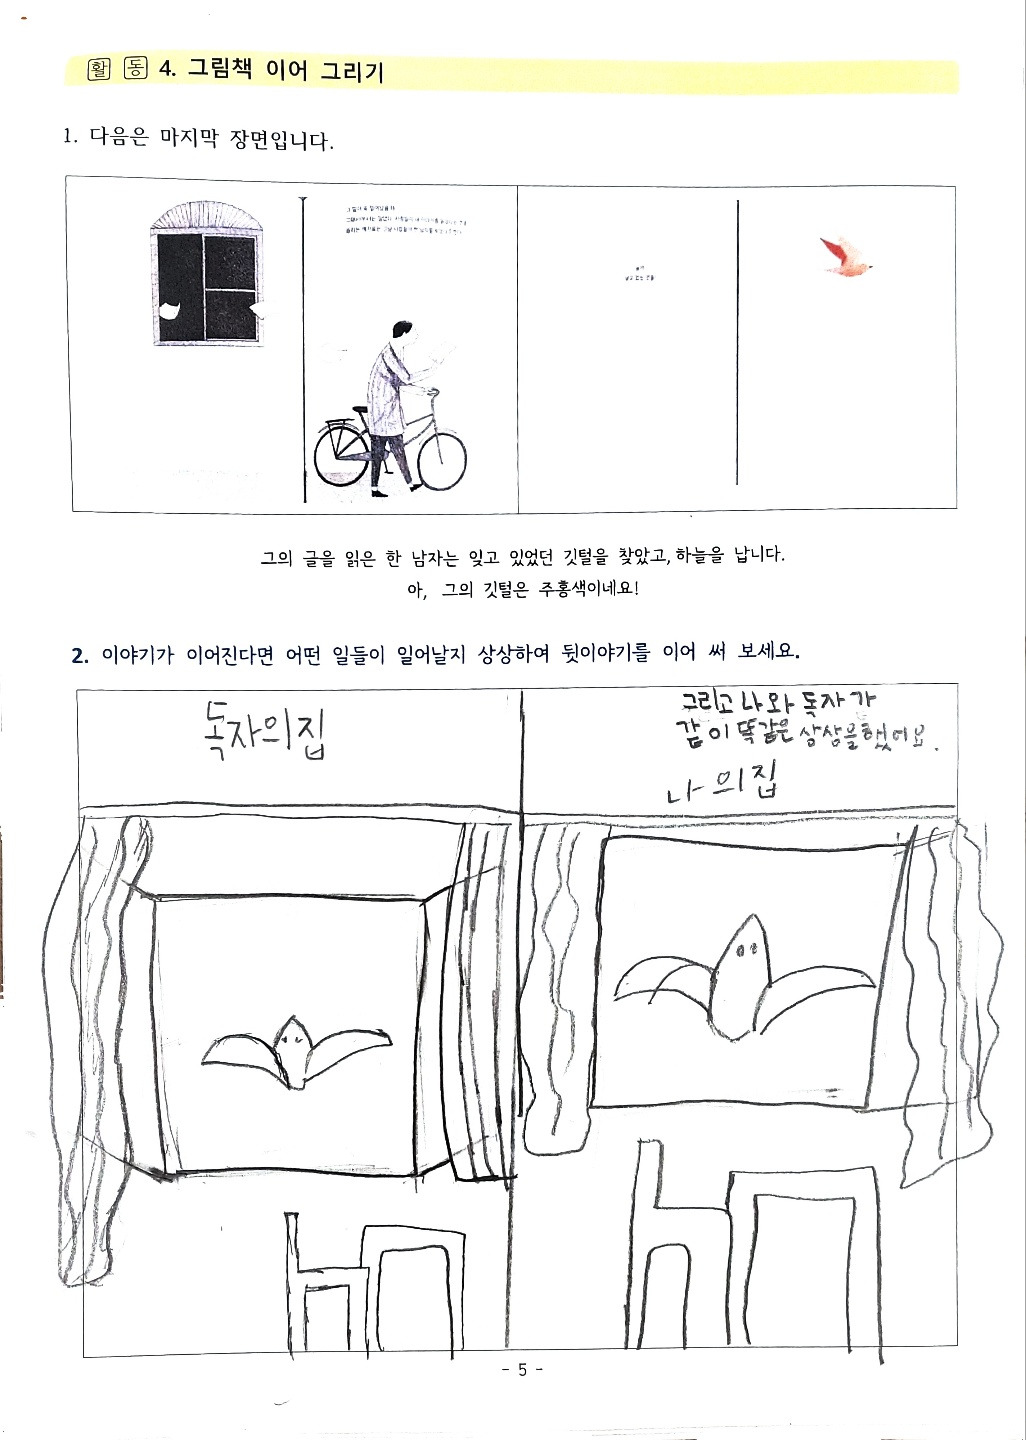 활 동 4. 그림책 이어 그리기
1. 다음은 마지막 장면입니다.
그의 글을 읽은 한 남자는 잊고 있었던 깃털을 찾았고, 하늘을 납니다.
아, 그의 깃털은 주홍색이네요!
2. 이야기가 이어진다면 어떤 일들이 일어날지 상상하여 뒷이야기를 이어 써 보세요.
독자의집
그리고 나와 독자가
같이 똑같은 상상을했어요.
나의집
- 5 -